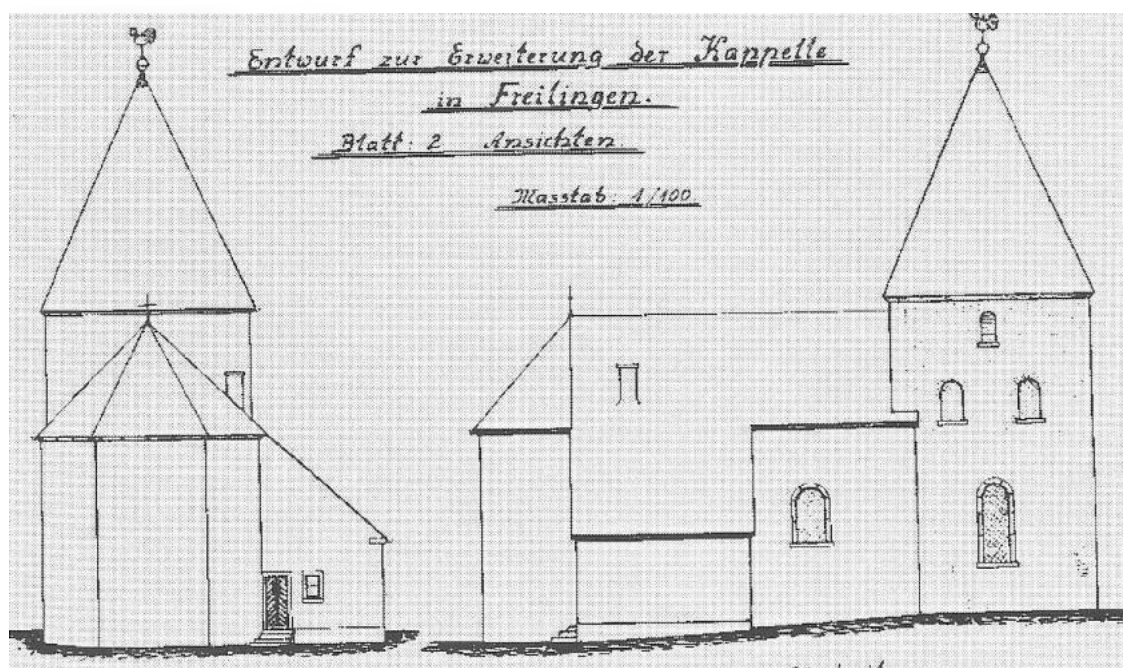 Entwurf zur Erweiterung der Kappelle
in Freilingen.
Blatt: 2 Ansichten
Masstab: 1/100